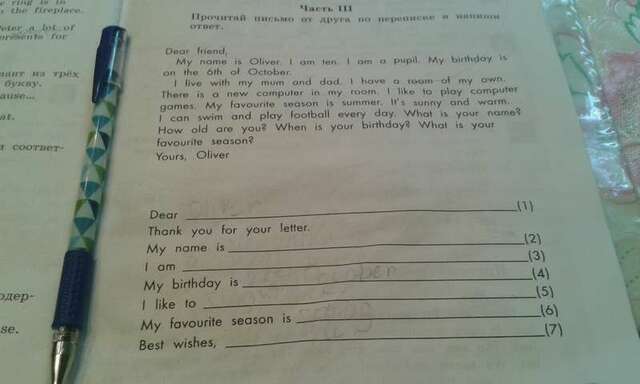 ring is in
the fireplace.
Peter a lot of
presents for
из трёх
букву.
ause...
at.
и соответ-
одер-
se.
Часть III
Прочитай письмо от друга по переписке и напиши
ответ.
Dear friend,
My name is Oliver. I am ten. I am a pupil. My birthday is
on the 6th of October.
I live with my mum and dad. I have a room of my own.
There is a new computer in my room. I like to play computer
games. My favourite season is summer. It's sunny and warm.
I can swim and play football every day. What is your name?
How old are you? When is your birthday? What is your
favourite season?
Yours, Oliver
Dear (1)
Thank you for your letter.
My name is (2)
I am (3)
My birthday is (4)
I like to (5)
My favourite season is (6)
Best wishes, (7)